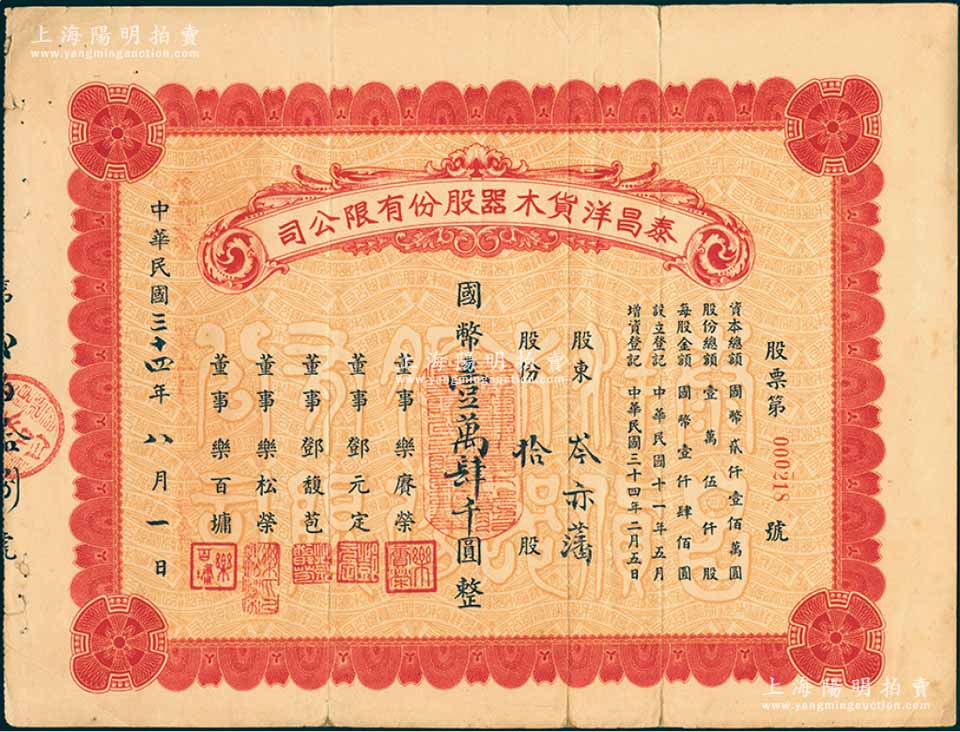 上海陽明拍賣
www.yangmingauction.com
泰昌洋貨木器股份有限公司
股票第 000218 號
資本總額 國幣貳仟壹佰萬圓
股份總額 壹萬伍仟股
每股金額 國幣壹仟肆佰圓
設立登記 中華民國十一年五月
增資登記 中華民國三十四年二月五日
股東 岑亦藩
股份 拾 股
國幣壹萬肆千圓整
董事 樂賡榮
董事 鄧元定
董事 鄧馥苞
董事 樂松榮
董事 樂百墉
中華民國三十四年八月一日
上海陽明拍賣
www.yangmingauction.com
上海陽明拍賣
www.yangmingauction.com